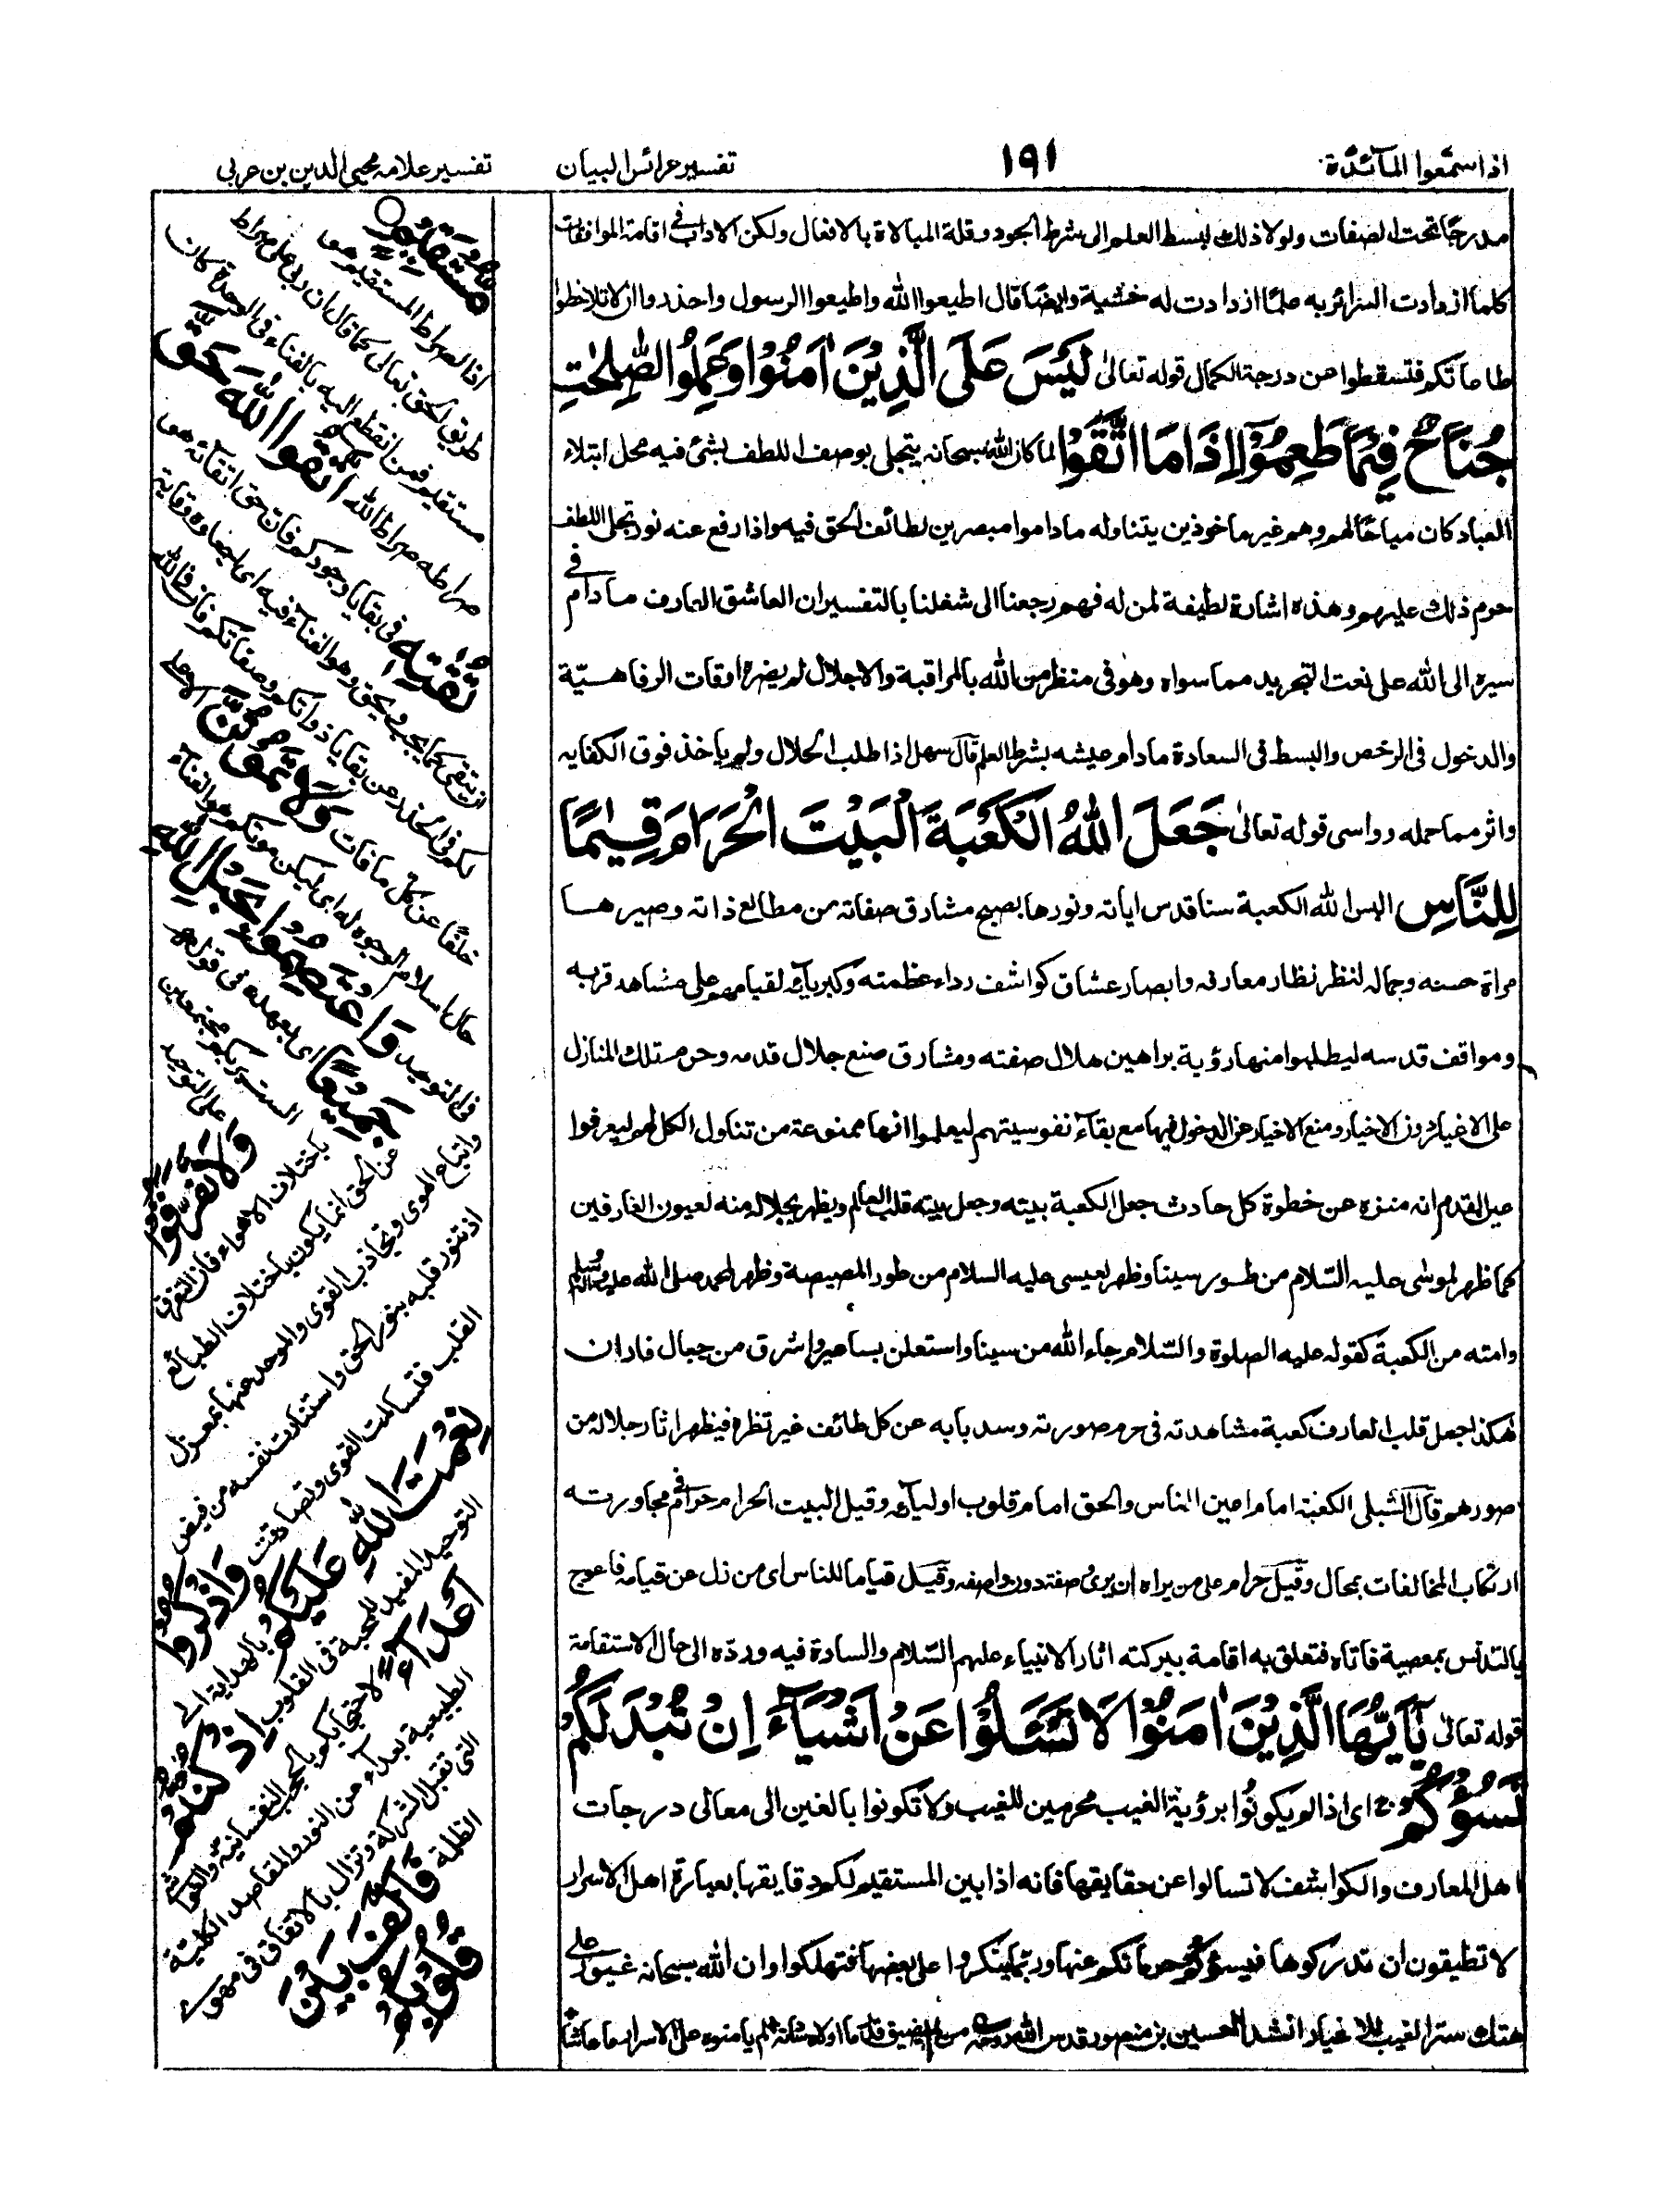 اذا سمعوا المآئدة ١٩١ تفسير عرائس البيان تفسير علامه محيى الدين بن عربى
مدرجا تحت الصفات ولولا ذلك لبسط العلم الى شرط الجود وقلة المبالاة بالافعال ولكن الاداب فى اقامة الموافقات
كلما ازدادت السرائر به علما ازدادت له خشية وايضا قال اطيعوا الله واطيعوا الرسول واحذروا ان لا تلاحظوا
طاعاتكم فتسقطوا عن درجة الكمال قوله تعالى لَيْسَ عَلَى الَّذِيْنَ اٰمَنُوْا وَعَمِلُوا الصّٰلِحٰتِ
جُنَاحٌ فِيْمَا طَعِمُوْٓا اِذَا مَا اتَّقَوْا لما كان الله سبحانه يتجلى بوصف اللطف بشئ فيه محل ابتلاء
العباد كان مباحًا لهم وهم غير ماخوذين بتناوله ماداموا مبصرين لطائف الحق فيه واذا رفع عنه نور تجلى اللطف
حرم ذلك عليهم وهذه اشارة لطيفة لمن له فهم رجعنا الى شغلنا بالتفسير ان العاشق العارف مادام فى
سيره الى الله على نعت التجريد مما سواه وهو فى منظر من الله بالمراقبة والاجلال لم يضره اوقات الرفاهية
والدخول فى الرخص والبسط فى السعادة مادام عيشه بشرط العلم قال سهل اذا طلب الحلال ولم ياخذ فوق الكفايه
واثر مما حمله رواسى قوله تعالى جَعَلَ اللهُ الْكَعْبَةَ الْبَيْتَ الْحَرَامَ قِيٰمًا
لِلنَّاسِ البس الله الكعبة سنا قدس اياته ونورها بصبح مشارق صفاته من مطالع ذاته وصيرها
مراة حسنه وجماله لنظر نظار معارفه وابصار عشاق كواشف رداء عظمته وكبريائه لقيامهم على مشاهد قربه
ومواقف قدسه ليطلبوا منها رؤية براهين هلال صفته ومشارق صنع جلال قدمه وحرم تلك المنازل
على الاغيار دون الاخيار ومنع الاخيار عن الدخول فيها مع بقاء نفوسيتهم ليعلموا انها ممنوعة من تناول الكل لهم ليعرفوا
عين القدم انه منزه عن خطوة كل حادث جعل الكعبة بيته وجعل بيته قلب العالم ويظهر بجلاله منه لعيون العارفين
كما ظهر لموسى عليه السّلام من طور سينا وظهر لعيسى عليه السلام من طور المصيصة وظهر لمحمد صلى الله عليه وسلم
وامته من الكعبة كقوله عليه الصلوة والسّلام جاء الله من سينا واستعلن بساعير واشرق من جبال فاران
هكذا جعل قلب العارف كعبة مشاهدته فى حرم صورته وسد بابه عن كل طائف غير نظره فيظهر اثار جلاله من
صورهم قال الشبلى الكعبة امام اعين الناس والحق امام قلوب اوليائه وقيل البيت الحرام حرام فى مجاورته
ارتكاب المخالفات بحال وقيل حرام على من يراه ان يرى صفته دون واصفه وقيل قياما للناس اى من زل عن قيامه فاعوج
بالتدنس بمعصية فاتاه فتعلق به اقامة ببركته اثار الانبياء عليهم السّلام والسادة فيه وردّه الى حال الاستقامة
قوله تعالى يٰٓاَيُّهَا الَّذِيْنَ اٰمَنُوْا لَا تَسْئَلُوْا عَنْ اَشْيَآءَ اِنْ تُبْدَ لَكُمْ
تَسُؤْكُمْ اى اذا لم يكونوا برؤية الغيب محرمين للغيب ولا تكونوا بالغين الى معالى درجات
اهل المعارف والكواشف لا تسالوا عن حقايقها فانه اذا بين المستقيم لكم دقايقها بعبارة اهل الاسرار
لا تطيقون ان تدركوها فيسؤكم حرمانكم عنها وربما ينكروا على بعضها فتهلكوا وان الله سبحانه غيور على
هتك ستر الغيب للاغيار انشد الحسين بن منصور قدس الله روحه من لم يامنوه على الاسرار ما عاشا
مستقيم هذا صراط
اذا الصراط المستقيم هو
طريق الحق تعالى كما قال ان ربى على صراط
مستقيم فمن انقطع اليه بالفناء فى الوحدة كان
صراطه صراط الله اتقوا الله حق
تقته فى بقايا وجودكم فان حق اتقائه هو
ان يتقى كما يجب ويحق وهو الفناء فيه اى اجعلوه وقاية
لكم فى الحذر عن بقايا ذواتكم وصفاتكم فان فى الله
خلفا عن كل ما فات ولا تموتن الا على
حال اسلام الوجوه له اى ليكن موتكم هو الفناء
فى التوحيد واعتصموا بحبل الله
جميعا اى بعهده فى قوله
الست بربكم مجتمعين
على التوحيد
ولا تفرقوا
باختلاف الاهواء فان التفرق
عن الحق انما يكون باختلاف الطبائع
واتباع الهوى وتجاذب القوى والموحد عنها بمعزل
اذ تنور قلبه بنور الحق واستنارت نفسه من فيض
القلب فتسالمت القوى وتصادقت واذكروا
نعمت الله عليكم بالهداية الى
التوحيد المفيد للمحبة فى القلوب اذ كنتم
اعداء لاحتجابكم بالحجب النفسانية والغواشى
الطبيعية بعداء من النور والمقاصد الكلية
التى تقبل الشركة وتزال بالاتفاق فى مهوى
الظلمة فالف بين
قلوبكم